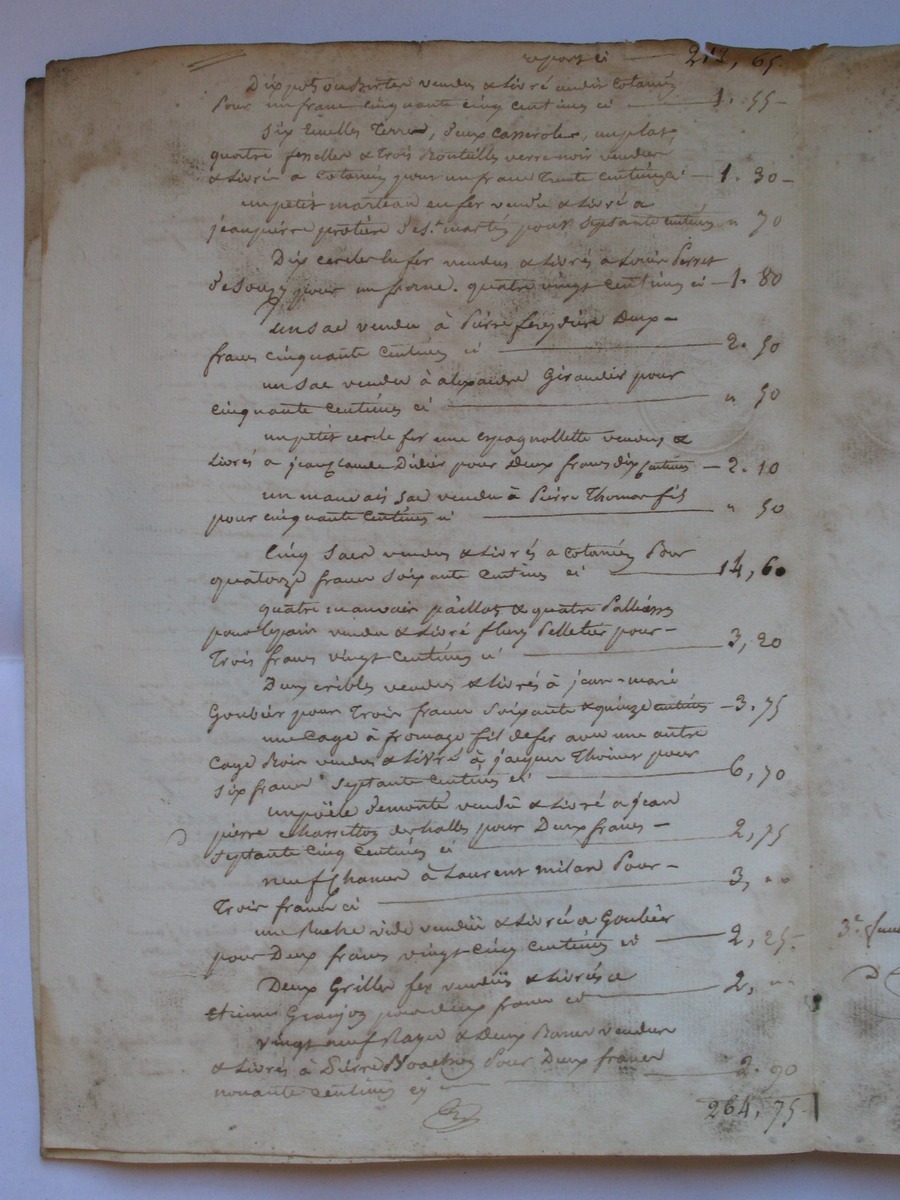 report ci — 212, 65.
Dix pots ou Birtes vendus & Livré audit Cotanés
Pour un franc cinquante cinq centimes ci — 1. 55 —
Six Ecuelles Terre, deux Casseroles, un plat,
quatre fesselles & Trois Bouteilles verre noir vendus
& Livrés a Cotanés pour un franc Trente centimes ci — 1. 30 —
un petit marteau en fer vendu & Livré a
jeanpierre protiere de St. martin pour Septante centimes " 70
Dix cercles de fer vendus & Livrés a Louis Perret
de Souzy pour un franc. quatre vingt centimes ci — 1. 80
un Sac vendu à Pierre Deux —
francs cinquante centimes ci — 2. 50
un Sac vendu à alexandre Giraudir pour
cinquante centimes ci — " 50
un petit cercle fer une espagnollette vendus &
Livrés a jeanClaude Didier pour Deux francs dix Centimes — 2. 10
un mauvais Sac vendu à Pierre Thomas fils
pour cinquante centimes ci — " 50
Cinq Sacs vendus & Livrés a Cotanés Pour
quatorze francs Soixante Centimes ci — 14, 60
quatre mauvais paillots & quatre Palliasses
pour le pain vendu & Livré fleury Pelletier pour —
Trois francs vingt centimes ci — 3, 20
Deux cribles vendus & Livrés à jean-marie
Goubier pour Trois francs Soixante & quinze centimes — 3. 75
une Cage à fromage fil de fer avec une autre
Cage Bois vendus & Livré à jacques Thoinet pour
Six francs Septante Centimes ci — 6, 70
un poële démonté vendu & Livré a jean
pierre charretton des halles pour Deux francs —
Septante Cinq Centimes ci — 2, 75
neuf Chaises à Laurent milan Pour —
Trois francs ci — 3, " "
une Ruche vide vendüe & Livrée a Goubier
pour Deux francs vingt-Cinq Centimes ci — 2, 25.
Deux Grilles fer vendües & Livrés a
Etienne Granjon pour deux francs ci — 2, " "
vingt neuf Rayes & Deux Banes vendus
& Livrés à Pierre Pour Deux francs
nonante centimes cy — 2. 90
264, 75
3e.